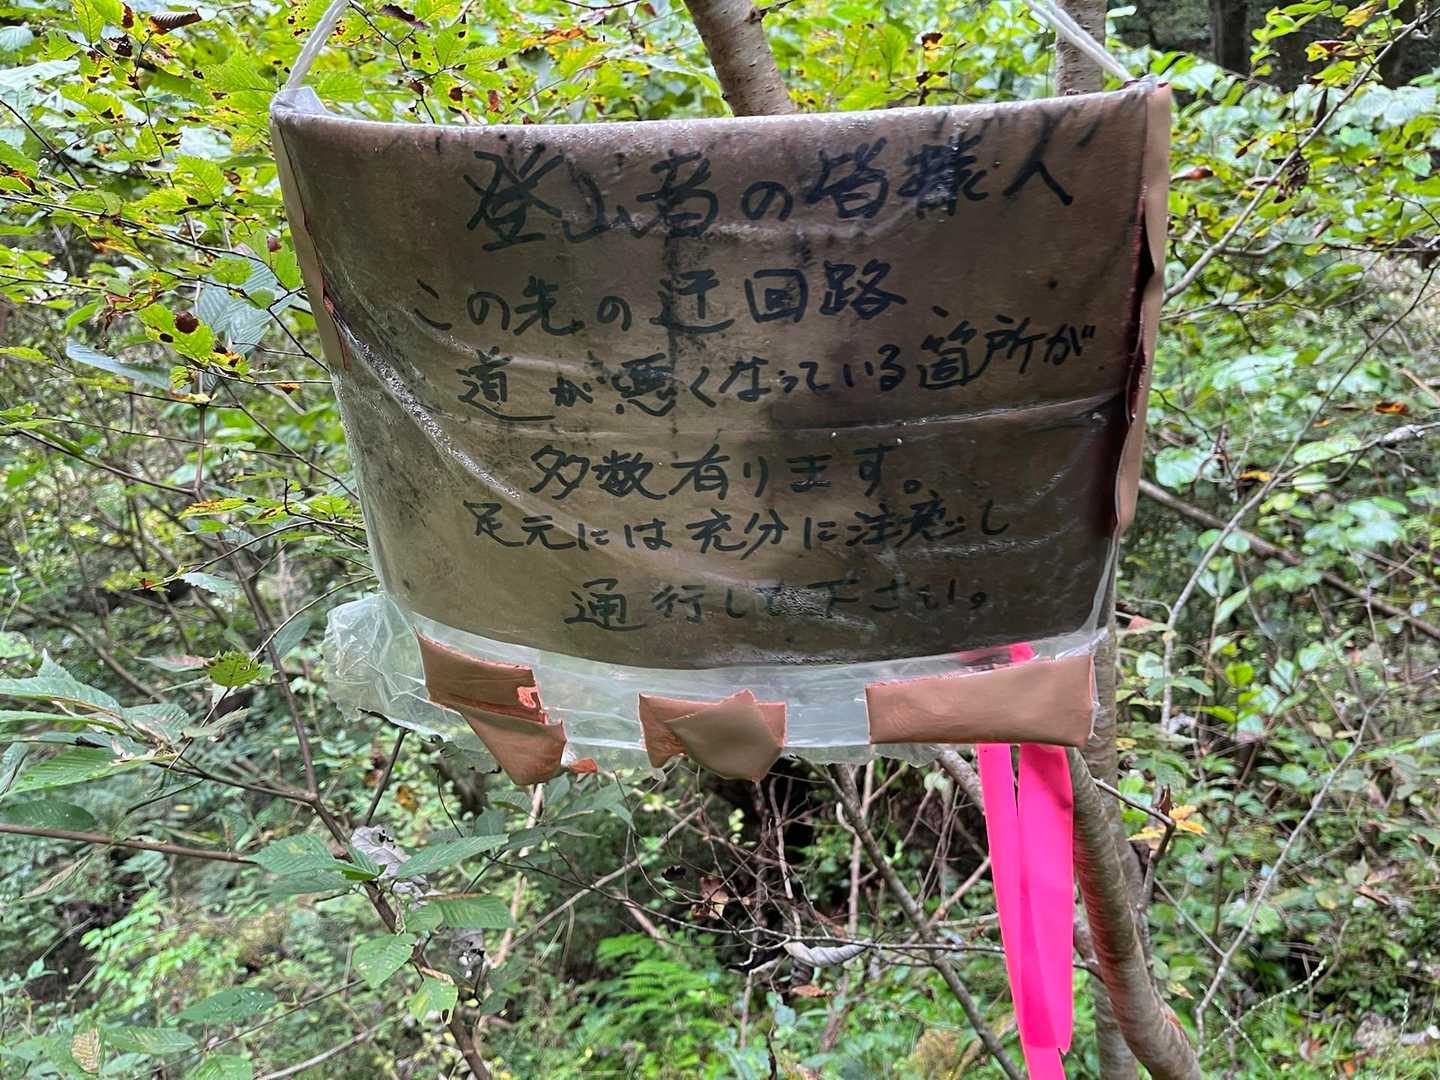 登山者の皆様へ
この先の迂回路、
道が悪くなっている箇所が
多数有ります。
足元には充分に注意し
通行して下さい。